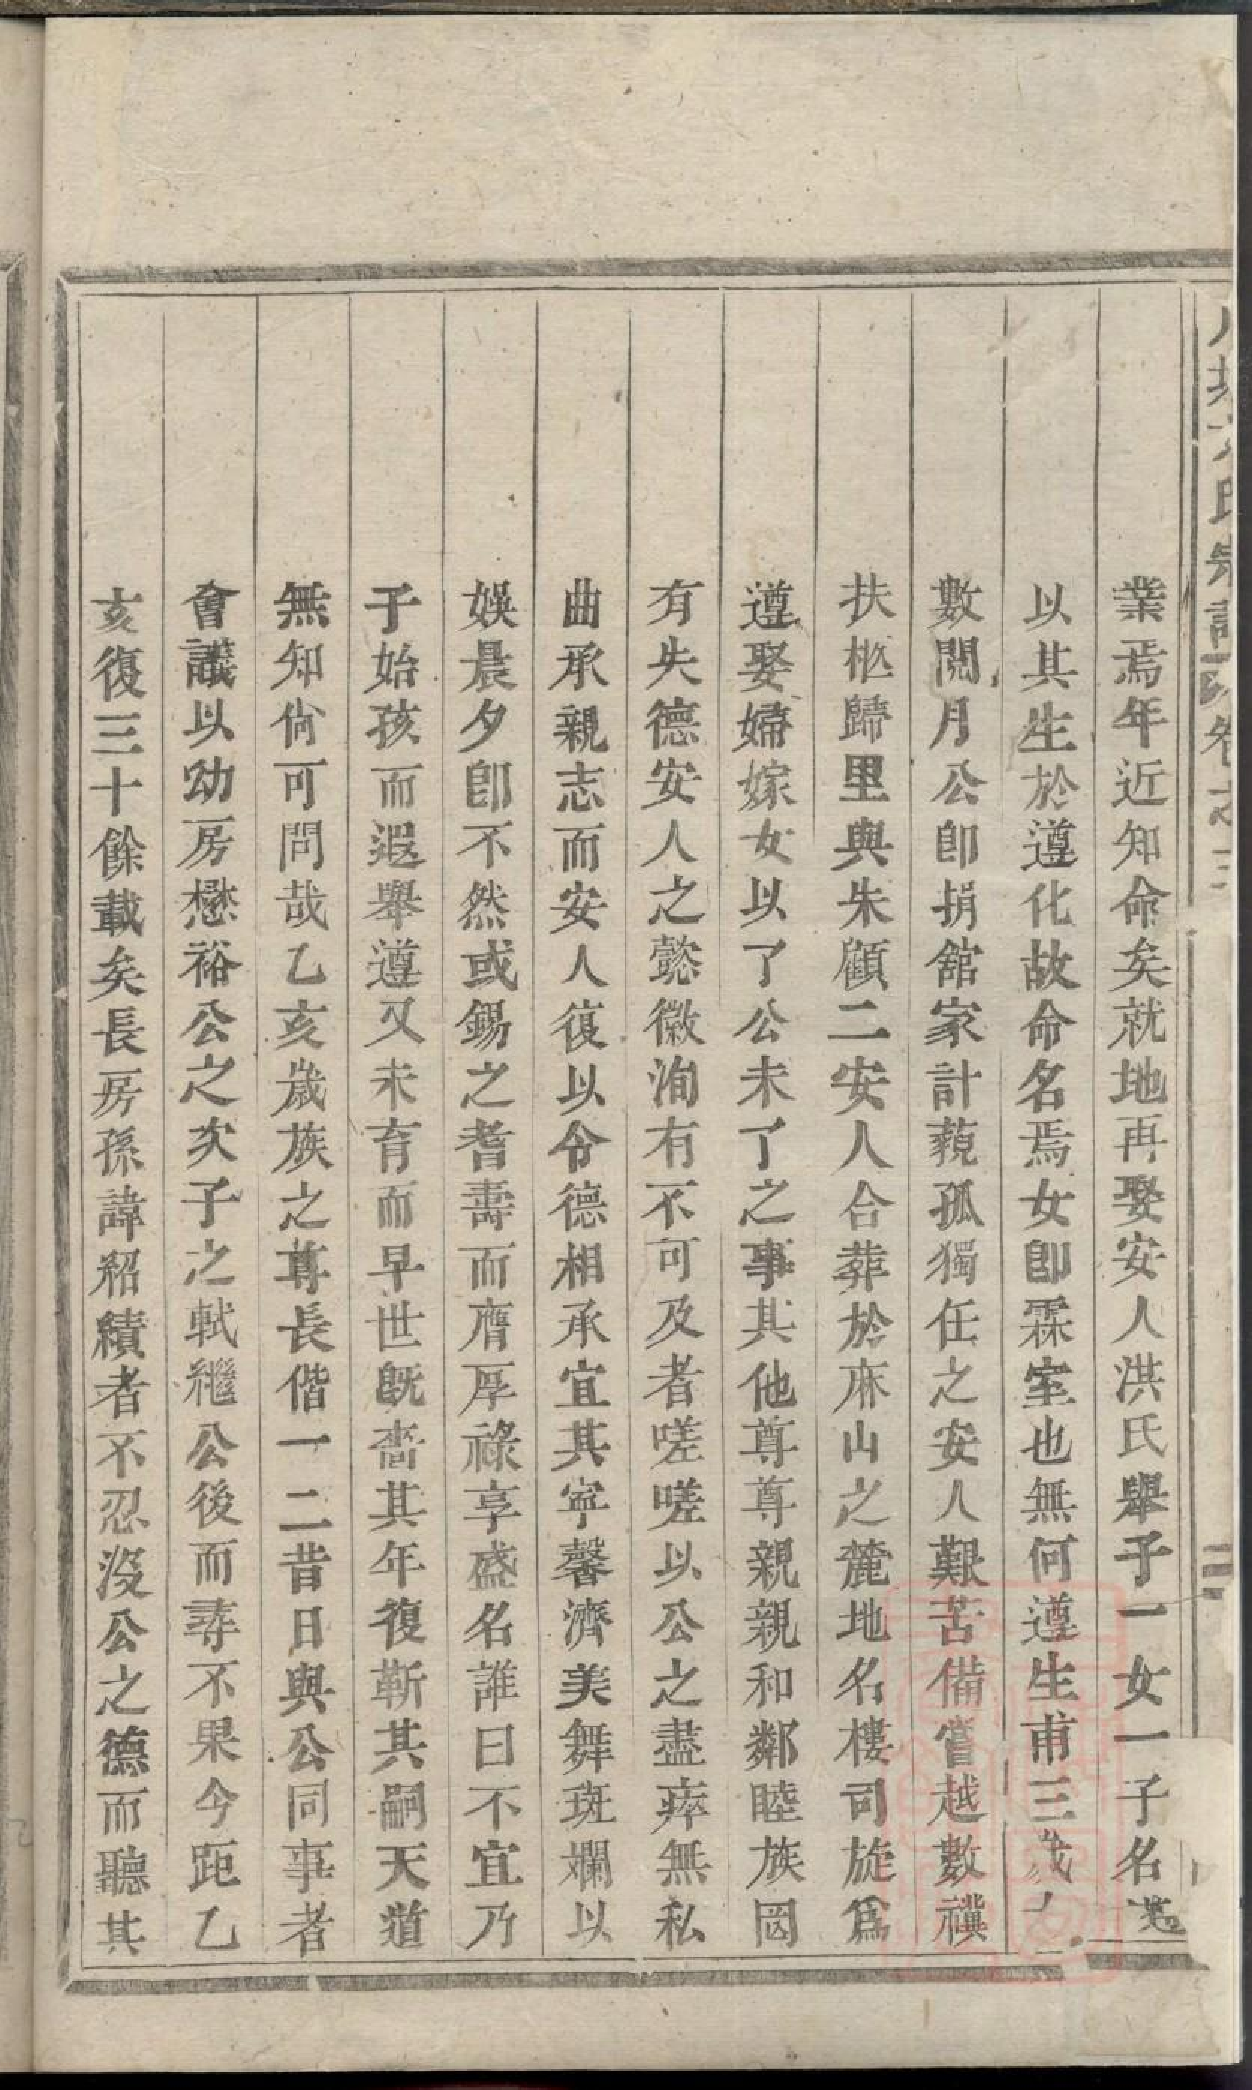 氏宗譜 卷之三
業焉年近知命矣就地再娶安人洪氏舉子一女一子名遵
以其生於遵化故命名焉女卽霖室也無何遵生甫三歲
數閱月公卽捐舘家計藐孤獨任之安人艱苦備嘗越數禩
扶柩歸里與朱顧二安人合葬於庥山之麓地名樓司旋爲
遵娶婦嫁女以了公未了之事其他尊尊親親和鄰睦族罔
有失德安人之懿徽洵有不可及者嗟嗟以公之盡瘁無私
曲承親志而安人復以令德相承宜其寧馨濟美舞斑斕以
娛晨夕卽不然或錫之耆壽而膺厚祿享盛名誰曰不宜乃
子始孩而遐舉遵又未育而早世旣嗇其年復靳其嗣天道
無知尙可問哉乙亥歲族之尊長偕一二昔日與公同事者
會議以幼房懋裕公之次子之軾繼公後而尋不果今距乙
亥復三十餘載矣長房孫諱紹績者不忍沒公之德而聽其